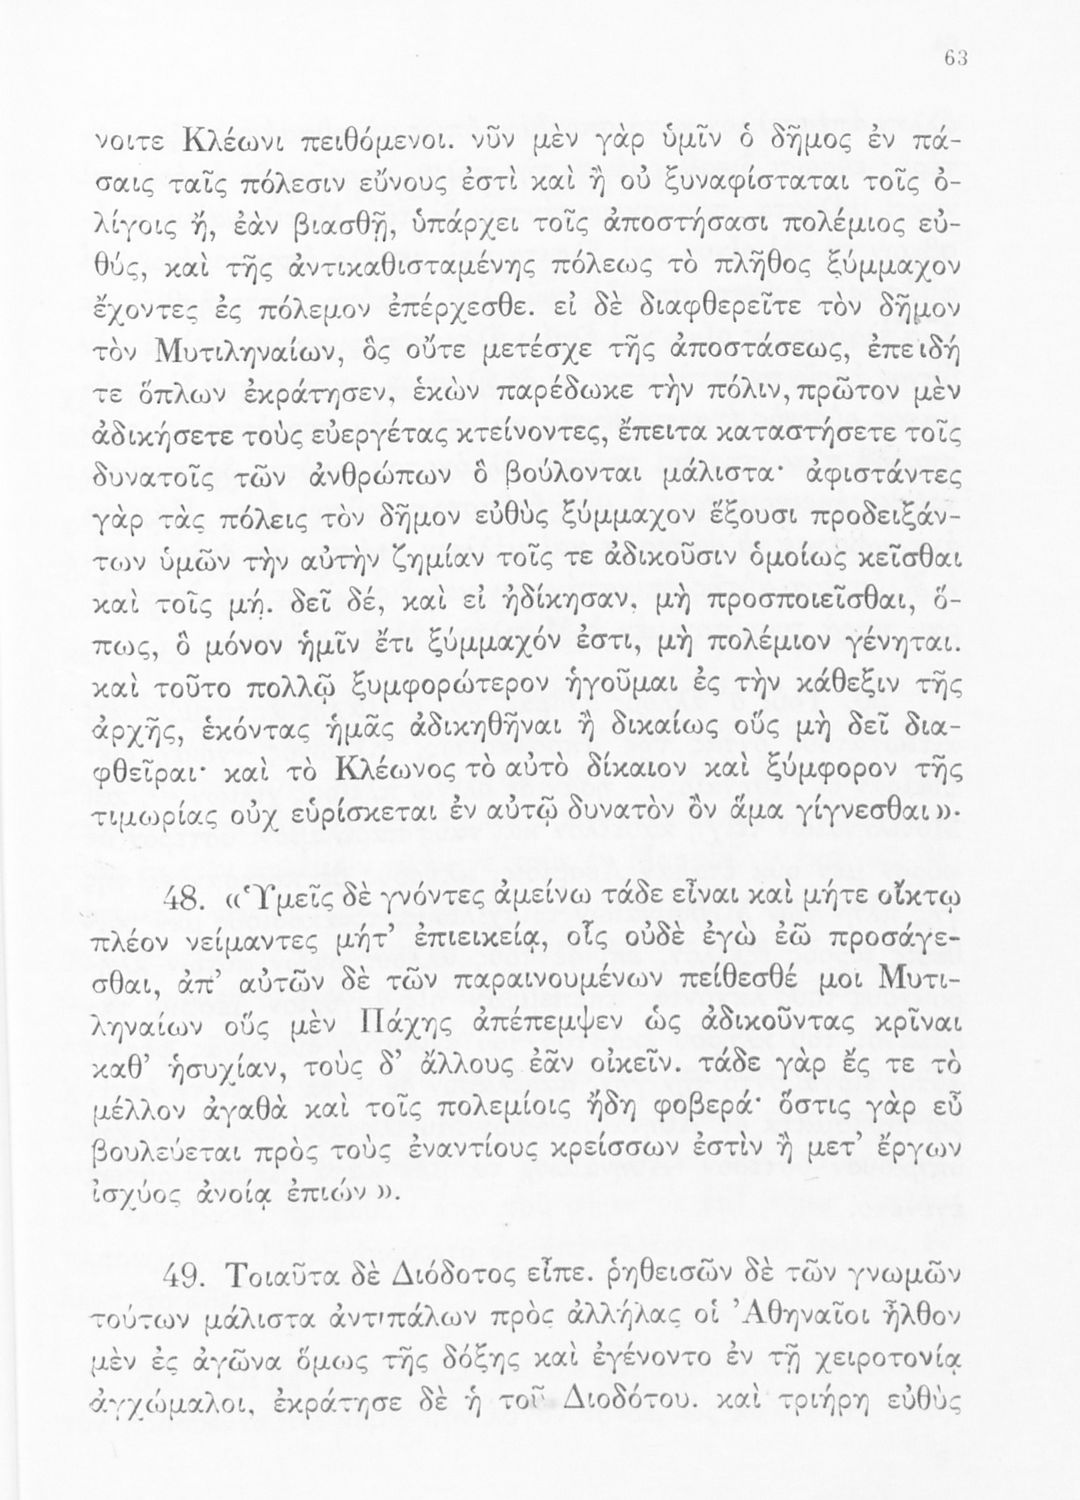 63
νοιτε Κλέωνι πειθόμενοι. νῦν μὲν γὰρ ὑμῖν ὁ δῆμος ἐν πά-
σαις ταῖς πόλεσιν εὔνους ἐστὶ καὶ ἢ οὐ ξυναφίσταται τοῖς ὀ-
λίγοις ἤ, ἐὰν βιασθῇ, ὑπάρχει τοῖς ἀποστήσασι πολέμιος εὐ-
θύς, καὶ τῆς ἀντικαθισταμένης πόλεως τὸ πλῆθος ξύμμαχον
ἔχοντες ἐς πόλεμον ἐπέρχεσθε. εἰ δὲ διαφθερεῖτε τὸν δῆμον
τὸν Μυτιληναίων, ὃς οὔτε μετέσχε τῆς ἀποστάσεως, ἐπειδή
τε ὅπλων ἐκράτησεν, ἑκὼν παρέδωκε τὴν πόλιν, πρῶτον μὲν
ἀδικήσετε τοὺς εὐεργέτας κτείνοντες, ἔπειτα καταστήσετε τοῖς
δυνατοῖς τῶν ἀνθρώπων ὃ βούλονται μάλιστα· ἀφιστάντες
γὰρ τὰς πόλεις τὸν δῆμον εὐθὺς ξύμμαχον ἕξουσι προδειξάν-
των ὑμῶν τὴν αὐτὴν ζημίαν τοῖς τε ἀδικοῦσιν ὁμοίως κεῖσθαι
καὶ τοῖς μή. δεῖ δέ, καὶ εἰ ἠδίκησαν, μὴ προσποιεῖσθαι, ὅ-
πως, ὃ μόνον ἡμῖν ἔτι ξύμμαχόν ἐστι, μὴ πολέμιον γένηται.
καὶ τοῦτο πολλῷ ξυμφορώτερον ἡγοῦμαι ἐς τὴν κάθεξιν τῆς
ἀρχῆς, ἑκόντας ἡμᾶς ἀδικηθῆναι ἢ δικαίως οὓς μὴ δεῖ δια-
φθεῖραι· καὶ τὸ Κλέωνος τὸ αὐτὸ δίκαιον καὶ ξύμφορον τῆς
τιμωρίας οὐχ εὑρίσκεται ἐν αὐτῷ δυνατὸν ὂν ἅμα γίγνεσθαι».
48. «Ὑμεῖς δὲ γνόντες ἀμείνω τάδε εἶναι καὶ μήτε οἴκτῳ
πλέον νείμαντες μήτ’ ἐπιεικείᾳ, οἷς οὐδὲ ἐγὼ ἐῶ προσάγε-
σθαι, ἀπ’ αὐτῶν δὲ τῶν παραινουμένων πείθεσθέ μοι Μυτι-
ληναίων οὓς μὲν Πάχης ἀπέπεμψεν ὡς ἀδικοῦντας κρῖναι
καθ’ ἡσυχίαν, τοὺς δ’ ἄλλους ἐᾶν οἰκεῖν. τάδε γὰρ ἔς τε τὸ
μέλλον ἀγαθὰ καὶ τοῖς πολεμίοις ἤδη φοβερά· ὅστις γὰρ εὖ
βουλεύεται πρὸς τοὺς ἐναντίους κρείσσων ἐστὶν ἢ μετ’ ἔργων
ἰσχύος ἀνοίᾳ ἐπιών».
49. Τοιαῦτα δὲ Διόδοτος εἶπε. ῥηθεισῶν δὲ τῶν γνωμῶν
τούτων μάλιστα ἀντιπάλων πρὸς ἀλλήλας οἱ Ἀθηναῖοι ἦλθον
μὲν ἐς ἀγῶνα ὅμως τῆς δόξης καὶ ἐγένοντο ἐν τῇ χειροτονίᾳ
ἀγχώμαλοι, ἐκράτησε δὲ ἡ τοῦ Διοδότου. καὶ τριήρη εὐθὺς